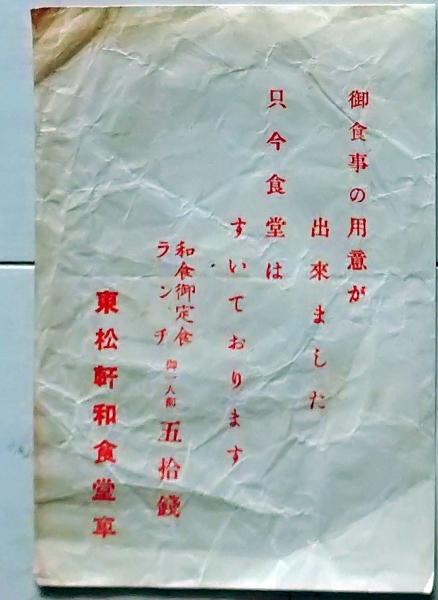 御食事の用意が
出來ました
只今食堂は
すいております
和食御定食
ランチ
御一人前
五拾錢
東松軒和食堂車